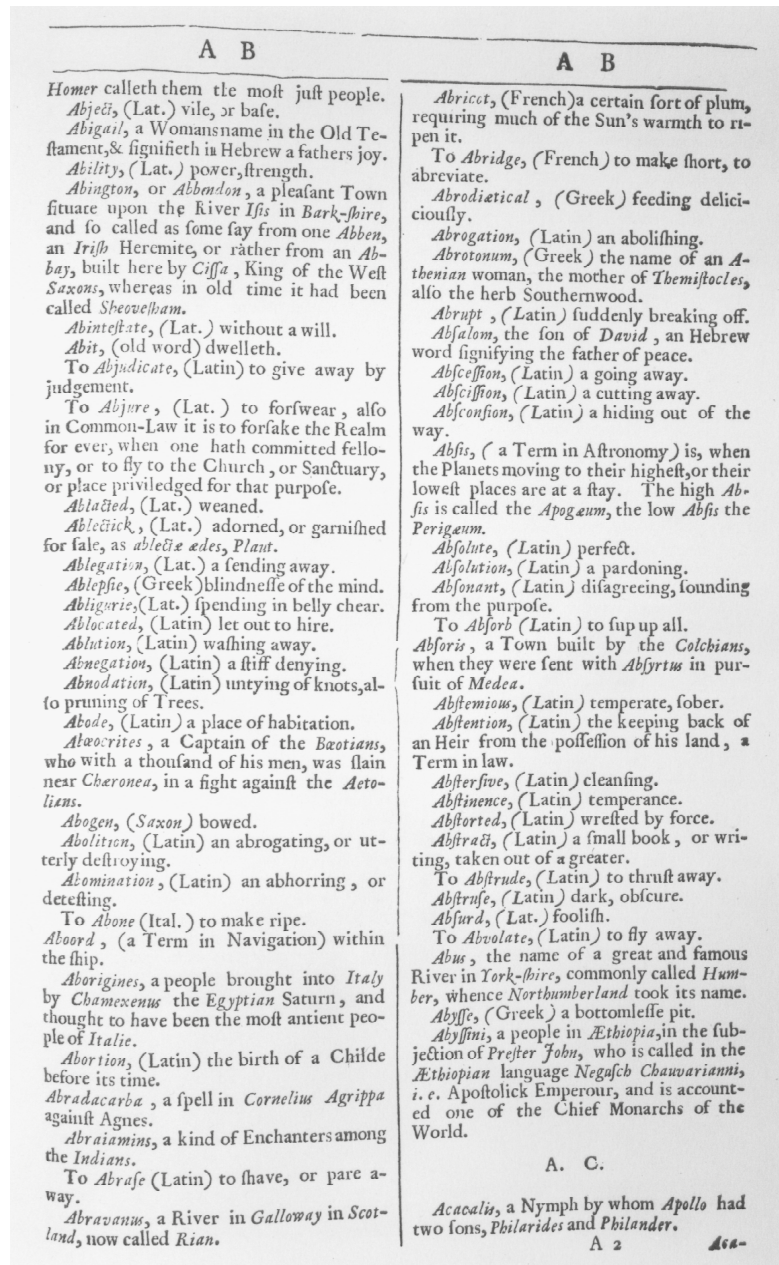 A B
Homer calleth them the moſt juſt people.
Abject, (Lat.) vile, or baſe.
Abigail, a Womansname in the Old Te-
ſtament,& ſignifieth in Hebrew a fathers joy.
Ability, (Lat.) power, ſtrength.
Abington, or Abbendon, a pleaſant Town
ſituate upon the River Iſis in Bark-ſhire,
and ſo called as ſome ſay from one Abben,
an Iriſh Heremite, or ràther from an Ab-
bay, built here by Ciſſa, King of the Weſt
Saxons, whereas in old time it had been
called Sheoveſham.
Abinteſtate, (Lat.) without a will.
Abit, (old word) dwelleth.
To Abjudicate, (Latin) to give away by
judgement.
To Abjure, (Lat.) to forſwear, alſo
in Common-Law it is to forſake the Realm
for ever, when one hath committed fello-
ny, or to fly to the Church, or Sanctuary,
or place priviledged for that purpoſe.
Ablacted, (Lat.) weaned.
Ablectick, (Lat.) adorned, or garniſhed
for ſale, as ablectæ ædes, Plaut.
Ablegation, (Lat.) a ſending away.
Ablepſie, (Greek)blindneſſe of the mind.
Abligurie,(Lat.) ſpending in belly chear.
Ablocated, (Latin) let out to hire.
Ablution, (Latin) waſhing away.
Abnegation, (Latin) a ſtiff denying.
Abnodation, (Latin) untying of knots,al-
ſo pruning of Trees.
Abode, (Latin) a place of habitation.
Abæocrites, a Captain of the Bœotians,
who with a thouſand of his men, was ſlain
near Chæronea, in a fight againſt the Aeto-
lians.
Abogen, (Saxon) bowed.
Abolition, (Latin) an abrogating, or ut-
terly deſtroying.
Abomination, (Latin) an abhorring, or
deteſting.
To Abone (Ital.) to make ripe.
Aboord, (a Term in Navigation) within
the ſhip.
Aborigines, a people brought into Italy
by Chamexenus the Egyptian Saturn, and
thought to have been the moſt antient peo-
ple of Italie.
Abortion, (Latin) the birth of a Childe
before its time.
Abradacarba, a ſpell in Cornelius Agrippa
againſt Agnes.
Abraiamins, a kind of Enchanters among
the Indians.
To Abraſe (Latin) to ſhave, or pare a-
way.
Abravanus, a River in Galloway in Scot-
land, now called Rian.
A B
Abricot, (French)a certain ſort of plum,
requiring much of the Sun's warmth to ri-
pen it.
To Abridge, (French) to make ſhort, to
abreviate.
Abrodiætical, (Greek) feeding delici-
ciouſly.
Abrogation, (Latin) an aboliſhing.
Abrotonum, (Greek) the name of an A-
thenian woman, the mother of Themiſtocles,
alſo the herb Southernwood.
Abrupt, (Latin) ſuddenly breaking off.
Abſalom, the ſon of David, an Hebrew
word ſignifying the father of peace.
Abſceſſion, (Latin) a going away.
Abſciſſion, (Latin) a cutting away.
Abſconſion, (Latin) a hiding out of the
way.
Abſis, (a Term in Aſtronomy) is, when
the Planets moving to their higheſt,or their
loweſt places are at a ſtay. The high Ab-
ſis is called the Apogæum, the low Abſis the
Perigæum.
Abſolute, (Latin) perfect.
Abſolution, (Latin) a pardoning.
Abſonant, (Latin) diſagreeing, ſounding
from the purpoſe.
To Abſorb (Latin) to ſup up all.
Abſoris, a Town built by the Colchians,
when they were ſent with Abſyrtus in pur-
ſuit of Medea.
Abſtemious, (Latin) temperate, ſober.
Abſtention, (Latin) the keeping back of
an Heir from the poſſeſſion of his land, a
Term in law.
Abſterſive, (Latin) cleanſing.
Abſtinence, (Latin) temperance.
Abſtorted, (Latin) wreſted by force.
Abſtract, (Latin) a ſmall book, or wri-
ting, taken out of a greater.
To Abſtrude, (Latin) to thruſt away.
Abſtruſe, (Latin) dark, obſcure.
Abſurd, (Lat.) fooliſh.
To Abvolate, (Latin) to fly away.
Abus, the name of a great and famous
River in York-ſhire, commonly called Hum-
ber, whence Northumberland took its name.
Abyſſe, (Greek) a bottomleſſe pit.
Abyſſini, a people in Æthiopia,in the ſub-
jection of Preſter John, who is called in the
Æthiopian language Negaſch Chauvarianni,
i. e. Apoſtolick Emperour, and is account-
ed one of the Chief Monarchs of the
World.
A. C.
Acacalis, a Nymph by whom Apollo had
two ſons, Philarides and Philander.
A 2 Aca-